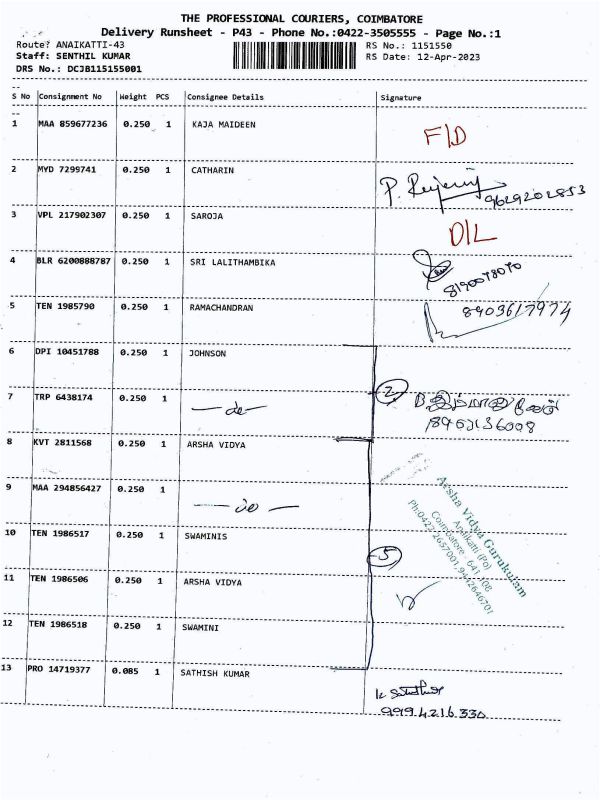 THE PROFESSIONAL COURIERS, COIMBATORE
Delivery Runsheet - P43 - Phone No.:0422-3505555 - Page No.:1
Route? ANAIKATTI-43 RS No.: 1151550
Staff: SENTHIL KUMAR RS Date: 12-Apr-2023
DRS No.: DCJB115155001
S No Consignment No Weight PCS Consignee Details Signature
1 MAA 859677236 0.250 1 KAJA MAIDEEN F/D
2 MYD 7299741 0.250 1 CATHARIN P.
9629202853
3 VPL 217902307 0.250 1 SAROJA D/L
4 BLR 6200888787 0.250 1 SRI LALITHAMBIKA
8190078070
5 TEN 1985790 0.250 1 RAMACHANDRAN 8903617974
6 DPI 10451788 0.250 1 JOHNSON
2
7 TRP 6438174 0.250 1 — do —
8 KVT 2811568 0.250 1 ARSHA VIDYA
9 MAA 294856427 0.250 1 — do —
Arsha Vidya Gurukulam
Anaikatti (Po)
Coimbatore - 641 108
10 TEN 1986517 0.250 1 SWAMINIS
5
11 TEN 1986506 0.250 1 ARSHA VIDYA
12 TEN 1986518 0.250 1 SWAMINI
13 PRO 14719377 0.085 1 SATHISH KUMAR
9994216330